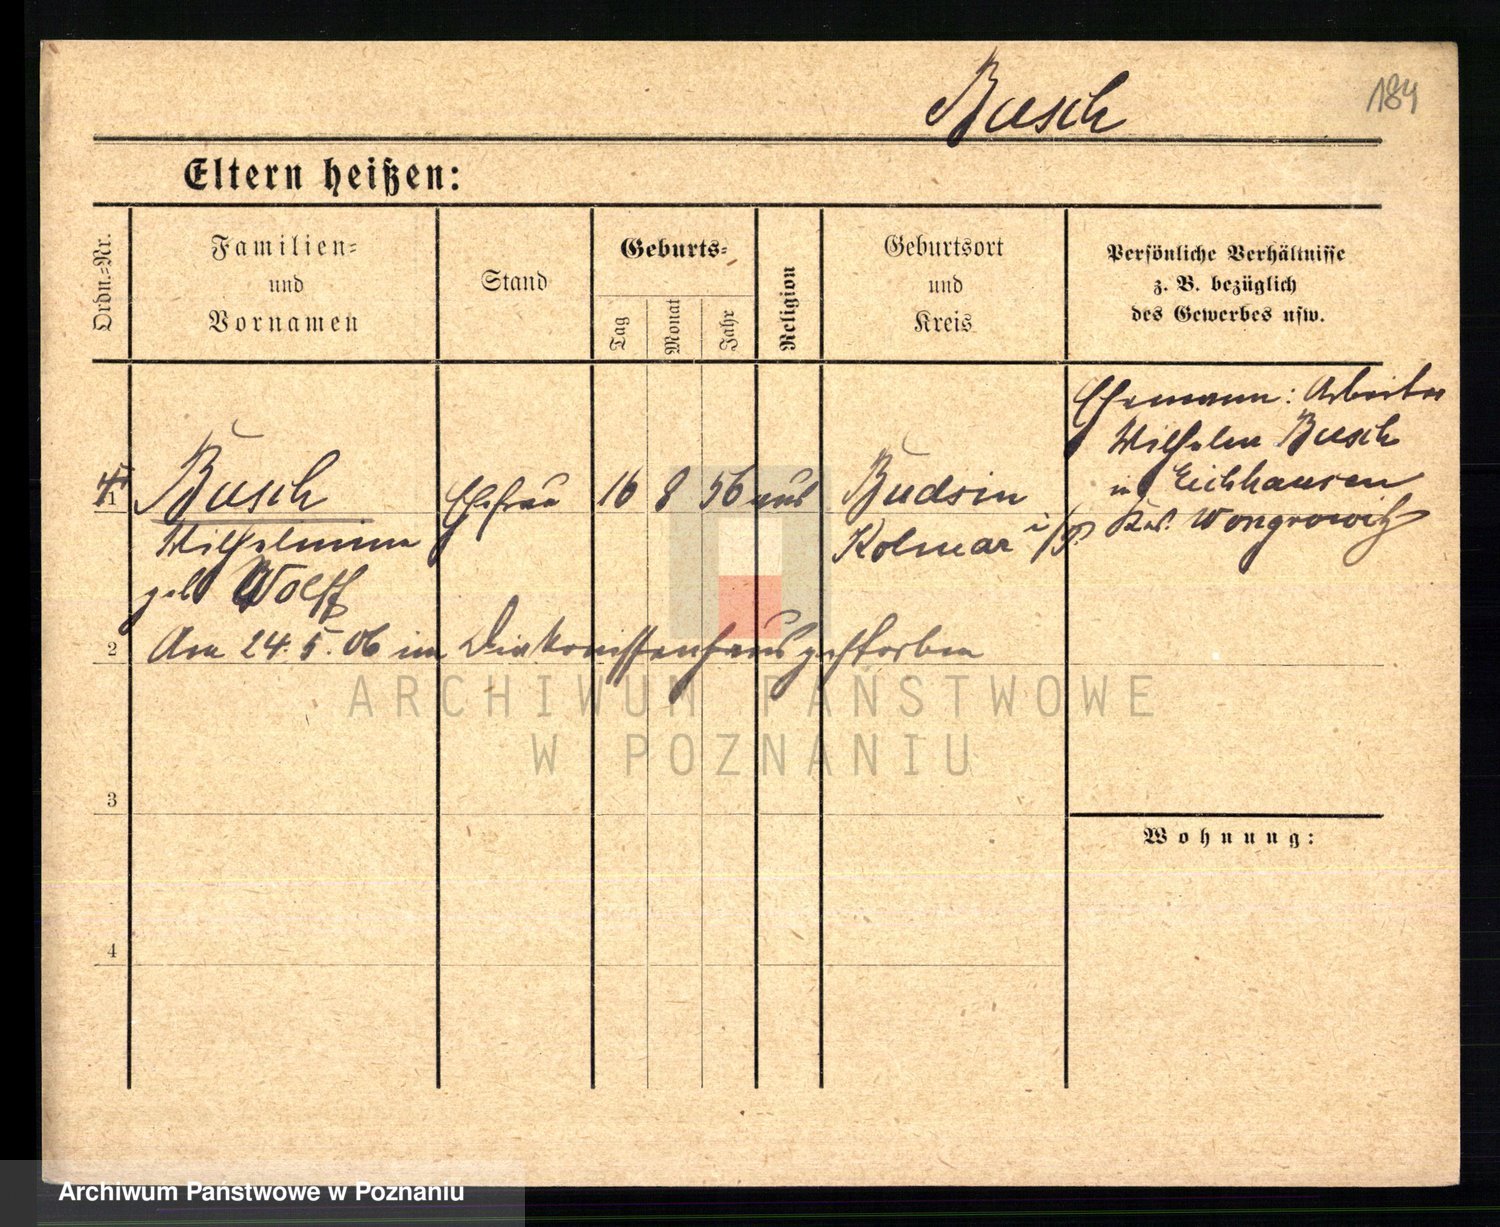 Busch
184
Eltern heißen:
Ordn.-Nr.
Familien-
und
Vornamen
Stand
Geburts-
Tag
Monat
Jahr
Religion
Geburtsort
und
Kreis
Persönliche Verhältnisse
z. B. bezüglich
des Gewerbes usw.
Ehemann: Arbeiter
Wilhelm Busch
in Eichhausen
Krs. Wongrowitz
1
Busch
Wilhelmine
geb Wolff
Ehefrau
16 8 56
Budsin
Kolmar i/P.
2
Am 24. 5. 06 im Diakonissenhaus gestorben
3
4
Wohnung:
ARCHIWUM PAŃSTWOWE
W POZNANIU
Archiwum Państwowe w Poznaniu